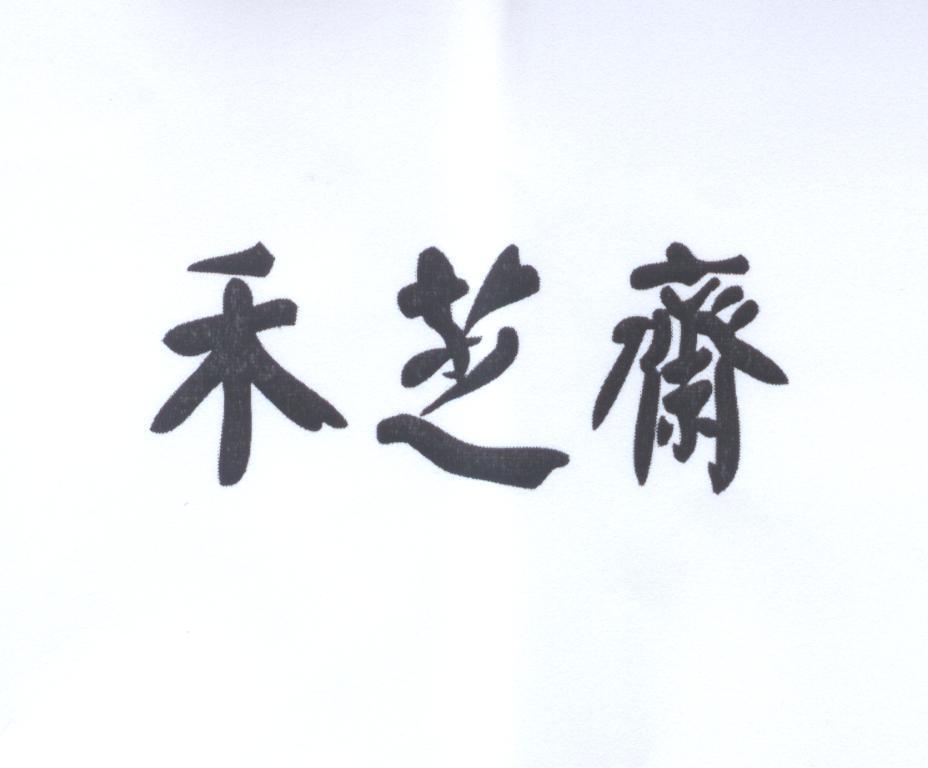 禾芝齋